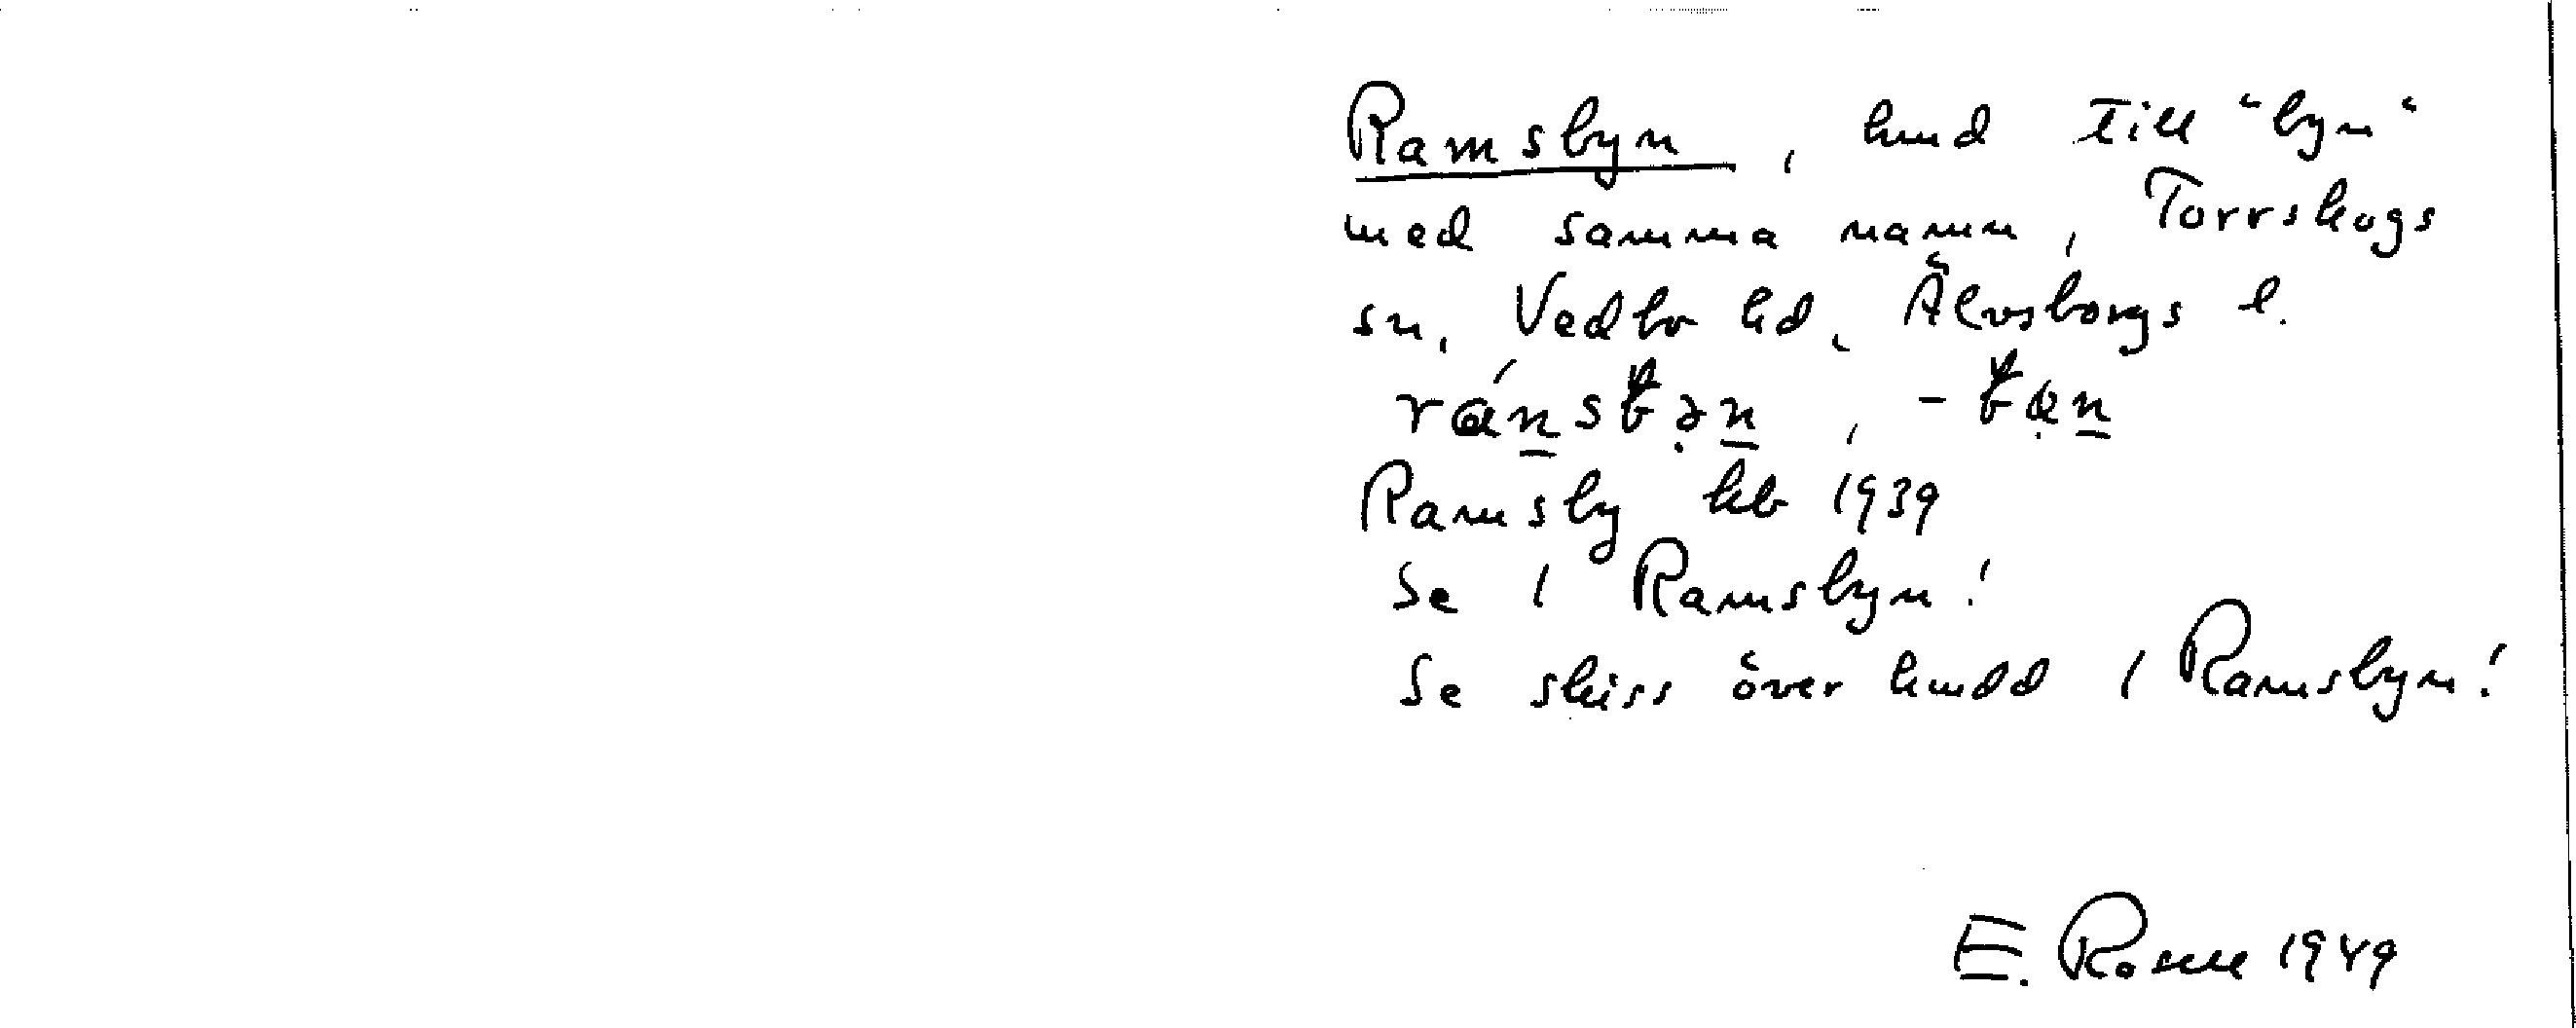 Ramsbyn, hmd till "byn"
med samma namn, Torrskogs
sn, Vedbo hd, Älvsborgs l.
Ramsby kb 1939
Se 1 Ramsbyn!
Se skiss över hmdd 1 Ramsbyn!
E. Rosell 1949